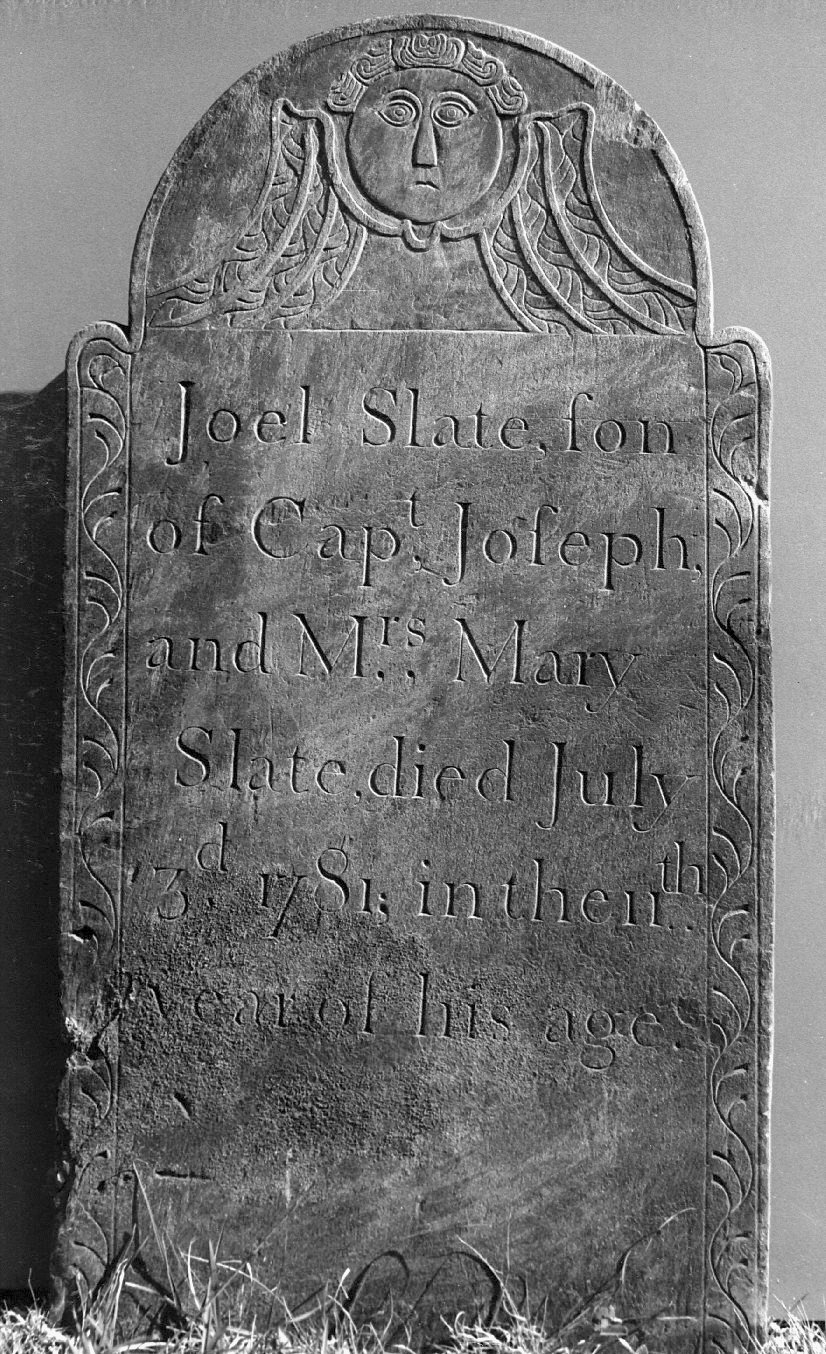 Joel Slate, ſon
of Capt. Joſeph,
and Mrs. Mary
Slate, died July
3d. 1781; in then th
year of his age.